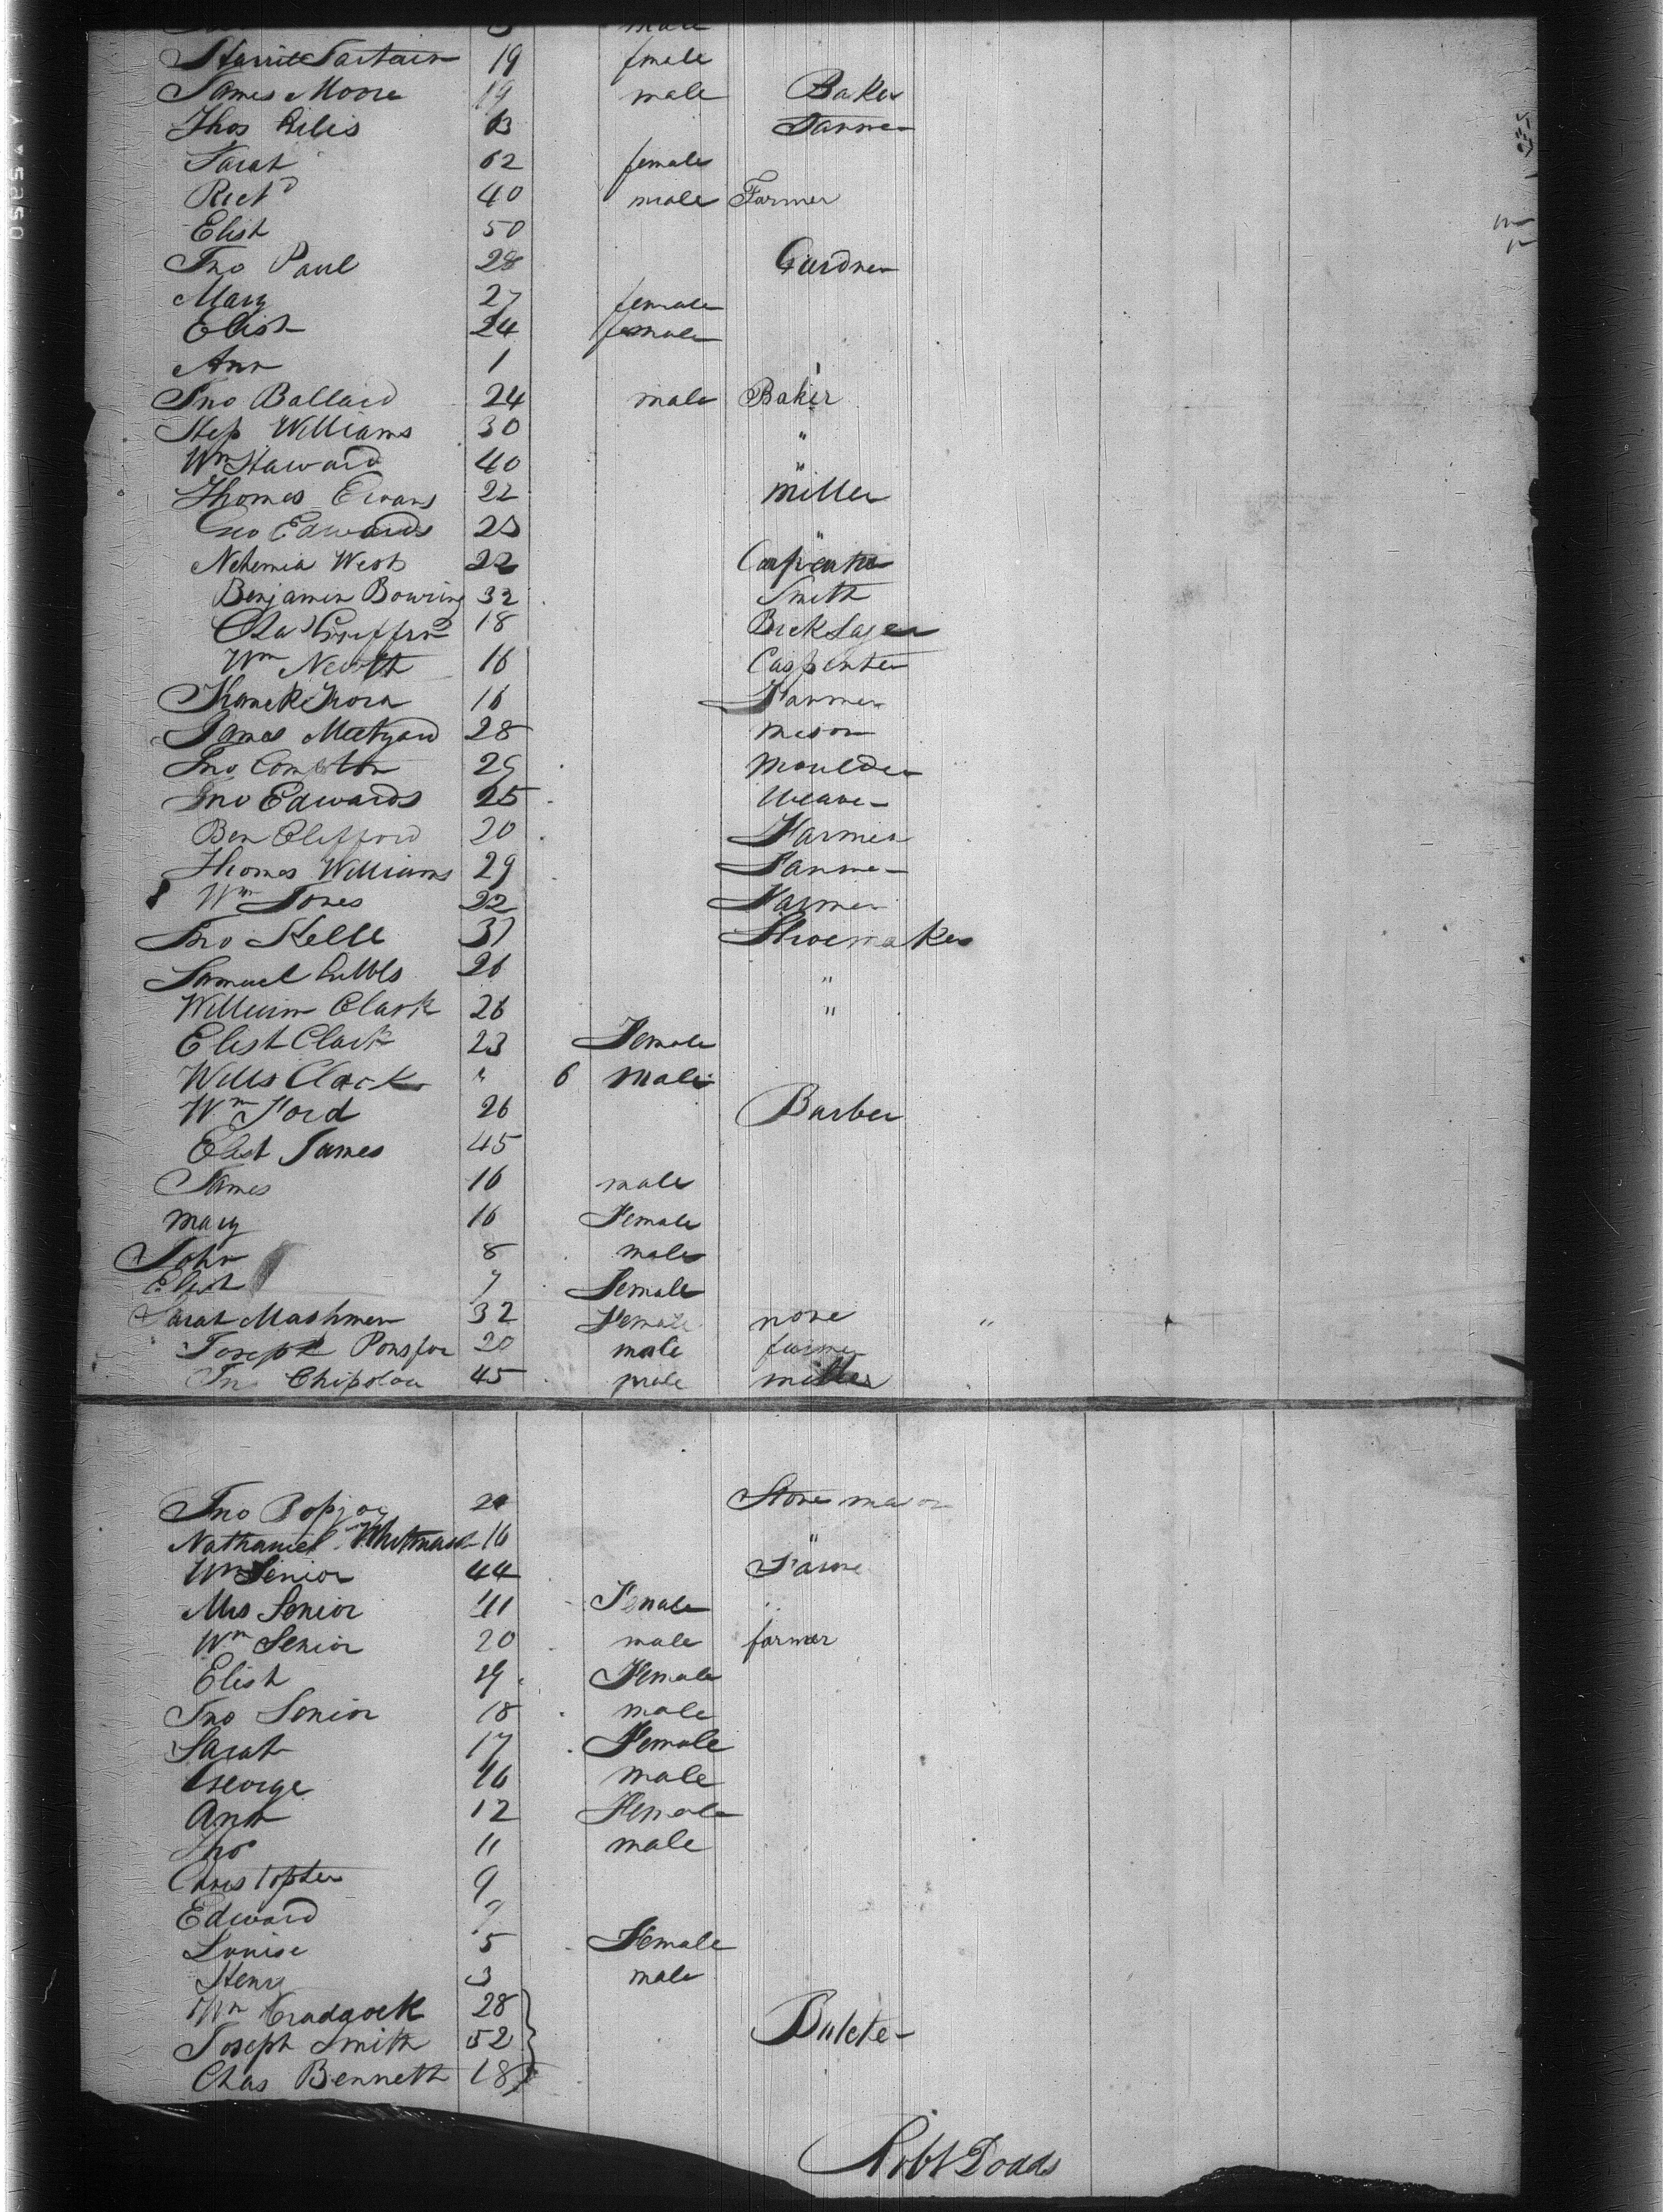 male
Sartain 19 female
James Moore 19 male Baker
Thos 63
Sarah 62 female
Richd 40 male Farmer
Elisth 50
Jno Paul 28 Gardner
Mary 27 female
Elisth 24 female
Ann 1
Jno Ballard 24 male Baker
Step Williams 30 "
Wm Haward 40 "
Thomas Evans 22 miller
Geo Edwards 25 "
Nehemia West 22 Carpenter
Benjamin Bowring 32 Smith
Cha Griffin 18 Brick Layer
Wm 16 Carpenter
16 Farmer
James Meatyard 28 mason
Jno Compton 29 Moulder
Jno Edwards 25 Weaver
Ben Clifford 20 Farmer
Thomas Williams 29 Farmer
Wm Jones 22 Farmer
Jno Kelle 37 Shoemaker
Samuel 26 "
William Clark 26 "
Elisth Clark 23 Female
Wills Clark " 6 Male
Wm Ford 26 Barber
Elisth James 45
James 16 male
Mary 16 Female
John 8 male
Elisth 7 Female
Sarah Mashmen 32 Female none "
Joseph Ponsfor 20 male farmer
Jno 45 male miller
Jno 20 Stone mason
Nathaniel Whitmash 16 "
Wm Senior 44 Farme
Mrs Senior 41 Female
Wm Senior 20 male farmer
Elisth 19 Female
Jno Senior 18 male
Sarah 17 Female
George 16 male
Ann 12 Female
Thos 11 male
Christopher 9
Edward 7
Louise 5 Female
Henry 3 male
Wm Craddock 28
Joseph Smith 52 Butcher
Chas Bennett 18
Robt Dodds